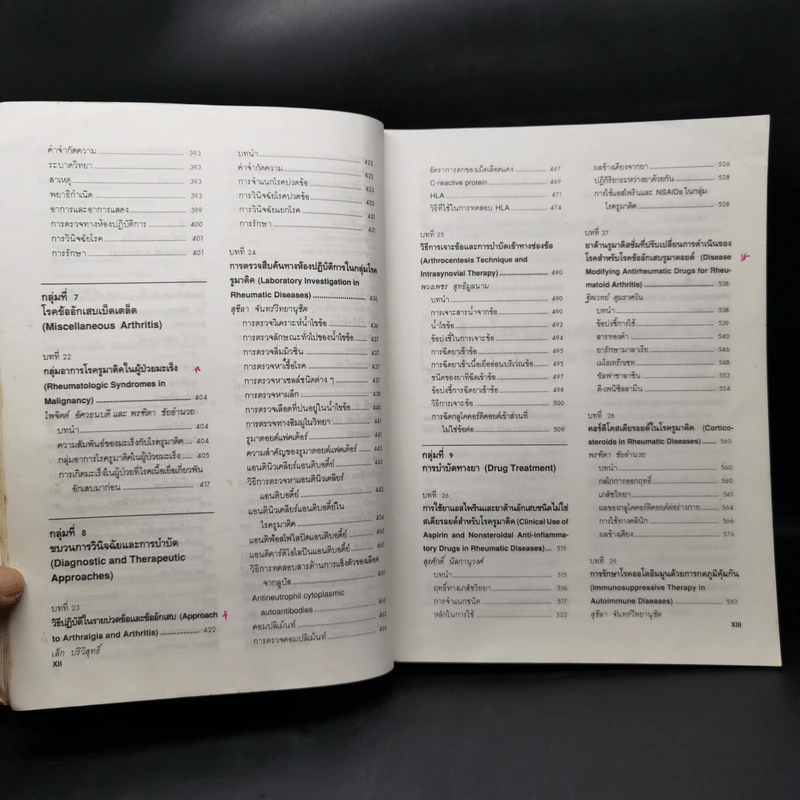 คำจำกัดความ 393
ระบาดวิทยา 393
สาเหตุ 393
พยาธิกำเนิด 393
อาการและอาการแสดง 399
การตรวจทางห้องปฏิบัติการ 400
การวินิจฉัยโรค 401
การรักษา 401
กลุ่มที่ 7
โรคข้ออักเสบเบ็ดเตล็ด
(Miscellaneous Arthritis)
บทที่ 22
กลุ่มอาการโรครูมาติคในผู้ป่วยมะเร็ง
(Rheumatologic Syndromes in
Malignancy) 404
ไพจิตต์ อัศวธนบดี และ พรฑิตา ชัยอำนวย
บทนำ 404
ความสัมพันธ์ของมะเร็งกับโรครูมาติค 404
กลุ่มอาการโรครูมาติคในผู้ป่วยมะเร็ง 405
การเกิดมะเร็งในผู้ป่วยที่โรคเนื้อเยื่อเกี่ยวพัน
อักเสบมาก่อน 417
กลุ่มที่ 8
ขบวนการวินิจฉัยและการบำบัด
(Diagnostic and Therapeutic
Approaches)
บทที่ 23
วิธีปฏิบัติในรายปวดข้อและข้ออักเสบ (Approach
to Arthralgia and Arthritis) 422
เล็ก ปริวิสุทธิ์
XII
บทนำ 422
คำจำกัดความ 422
การจำแนกโรคปวดข้อ
การวินิจฉัยโรคปวดข้อ
การวินิจฉัยแยกโรค
การรักษา 431
บทที่ 24
การตรวจสืบค้นทางห้องปฏิบัติการในกลุ่มโรค
รูมาติค (Laboratory Investigation in
Rheumatic Diseases) 436
สุชีลา จันทร์วิทยานุชิต
การตรวจวิเคราะห์น้ำไขข้อ 436
การตรวจลักษณะทั่วไปของน้ำไขข้อ
การตรวจลิ่มมิวซิน
การตรวจหาเชื้อโรค
การตรวจหาเซลล์ชนิดต่าง ๆ
การตรวจหาผลึก
การตรวจเลือดที่ปนอยู่ในน้ำไขข้อ
การตรวจทางอิมมูโนวิทยา
รูมาตอยด์แฟคเต้อร์
ความสำคัญของรูมาตอยด์แฟคเต้อร์
แอนตินิวเคลียร์แอนติบอดี้ย์
วิธีการตรวจหาแอนตินิวเคลียร์
แอนติบอดี้ย์
แอนตินิวเคลียร์แอนติบอดี้ย์ใน
โรครูมาติค
แอนติฟอสโฟไลปิดแอนติบอดี้ย์
แอนติคาร์ดิโอไลปินแอนติบอดี้ย์
วิธีการทดสอบสารต้านการแข็งตัวของเลือด
จากลูปัส
Antineutrophil cytoplasmic
autoantibodies
คอมปลีเม้นท์
การตรวจคอมปลีเม้นท์ 464
อัตราการตกของเม็ดเลือดแดง 467
C-reactive protein 469
HLA 471
วิธีที่ใช้ในการทดสอบ HLA 474
บทที่ 25
วิธีการเจาะข้อและการบำบัดเข้าทางช่องข้อ
(Arthrocentesis Technique and
Intrasynovial Therapy) 490
พวงเพชร สุทธิมูลนาม
บทนำ 490
การเจาะสารน้ำจากข้อ 490
น้ำไขข้อ 490
ข้อบ่งชี้ในการเจาะข้อ 494
การฉีดยาเข้าข้อ 495
การฉีดยาเข้าเนื้อเยื่ออ่อนบริเวณข้อ 495
ชนิดของยาที่ฉีดเข้าข้อ 495
ข้อบ่งชี้ในการฉีดยาเข้าข้อ 498
วิธีการเจาะข้อ 500
การฉีดกลูโคคอร์ติคอยด์เข้าส่วนที่
ไม่ใช่ข้อต่อ 509
กลุ่มที่ 9
การบำบัดทางยา (Drug Treatment)
บทที่ 26
การใช้ยาแอสไพรินและยาต้านอักเสบชนิดไม่ใช่
สเตียรอยด์สำหรับโรครูมาติค (Clinical Use of
Aspirin and Nonsteroidal Anti-inflamma-
tory Drugs in Rheumatic Diseases) 515
สุรศักดิ์ นิลกานุวงศ์
บทนำ 515
ฤทธิ์ทางเภสัชวิทยา 515
การจำแนกชนิด 519
หลักในการใช้ 522
ผลข้างเคียงจากยา 526
ปฏิกิริยาระหว่างยาด้วยกัน 528
การใช้แอสไพรินและ NSAIDs ในกลุ่ม
โรครูมาติค 528
บทที่ 27
ยาต้านรูมาติสซั่มที่ปรับเปลี่ยนการดำเนินของ
โรคสำหรับโรคข้ออักเสบรูมาตอยด์ (Disease
Modifying Antirheumatic Drugs for Rheu-
matoid Arthritis) 538
รัตตวรรณ์ คุมราศวิน
บทนำ 538
ข้อบ่งชี้การใช้ 539
สารทองคำ 540
ยารักษามาลาเรีย 544
เมโธเทร็กเซท
ซัลฟาซาลาซีน
ดี-เพนิซิลลามีน
บทที่ 28
คอร์ติโคสเตียรอยด์ในโรครูมาติค (Cortico-
steroids in Rheumatic Diseases) 560
พรฑิตา ชัยอำนวย
บทนำ 560
กลไกการออกฤทธิ์ 560
เภสัชวิทยา 561
ผลของกลูโคคอร์ติคอยด์ต่อร่างกาย 564
การใช้ทางคลินิก
ผลข้างเคียง 576
บทที่ 29
การรักษาโรคออโตอิมมูนด้วยการกดภูมิคุ้มกัน
(Immunosuppressive Therapy in
Autoimmune Diseases) 580
สุชีลา จันทร์วิทยานุชิต
XIII